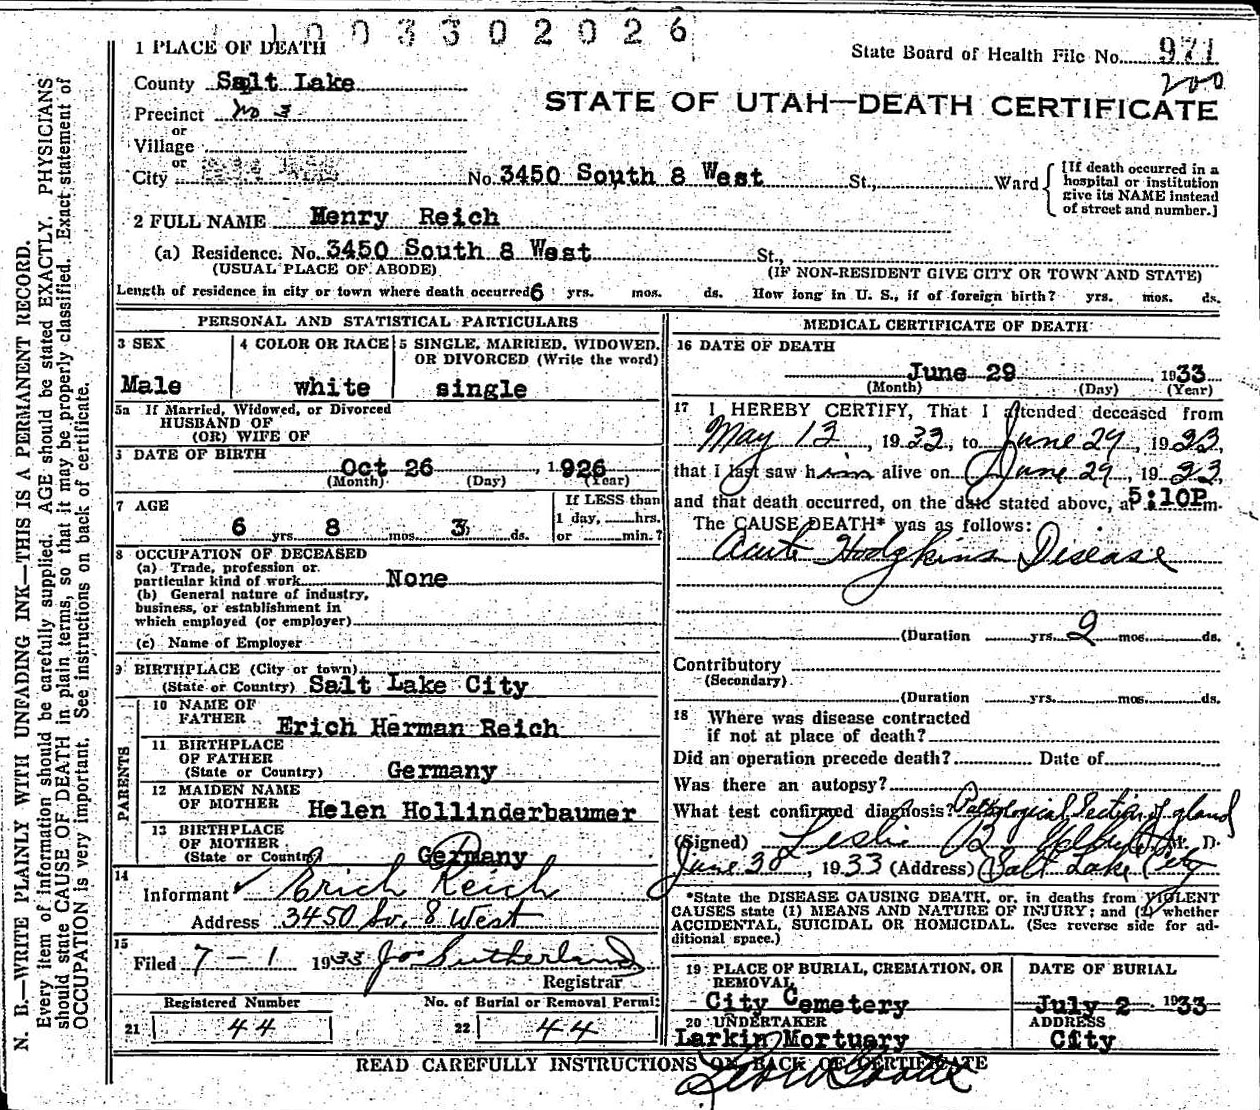 1003302026
State Board of Health File No. 971
200
STATE OF UTAH—DEATH CERTIFICATE
1 PLACE OF DEATH
County Salt Lake
Precinct No 3
or
Village
or
City No. 3450 South 8 West St., Ward
[If death occurred in a
hospital or institution
give its NAME instead
of street and number.]
2 FULL NAME Henry Reich
(a) Residence. No. 3450 South 8 West St.,
(USUAL PLACE OF ABODE) (IF NON-RESIDENT GIVE CITY OR TOWN AND STATE)
Length of residence in city or town where death occurred 6 yrs. mos. ds. How long in U. S., if of foreign birth? yrs. mos. ds.
PERSONAL AND STATISTICAL PARTICULARS
3 SEX
Male
4 COLOR OR RACE
white
5 SINGLE, MARRIED, WIDOWED,
OR DIVORCED (Write the word)
single
5a If Married, Widowed, or Divorced
HUSBAND OF
(OR) WIFE OF
DATE OF BIRTH
Oct 26, 1926
(Month) (Day) (Year)
7 AGE
6 yrs. 8 mos. 3 ds.
If LESS than
1 day, hrs.
or min.?
8 OCCUPATION OF DECEASED
(a) Trade, profession or
particular kind of work None
(b) General nature of industry,
business, or establishment in
which employed (or employer)
(c) Name of Employer
9 BIRTHPLACE (City or town)
(State or Country) Salt Lake City
PARENTS
10 NAME OF
FATHER Erich Herman Reich
11 BIRTHPLACE
OF FATHER
(State or Country) Germany
12 MAIDEN NAME
OF MOTHER Helen Hollinderbaumer
13 BIRTHPLACE
OF MOTHER
(State or Country) Germany
14
Informant Erich Reich
Address 3450 So. 8 West
15
Filed 7-1 1933 Jos Sutherland
Registrar
Registered Number
21 44
No. of Burial or Removal Permit
22 44
MEDICAL CERTIFICATE OF DEATH
16 DATE OF DEATH
June 29, 1933
(Month) (Day) (Year)
17 I HEREBY CERTIFY, That I attended deceased from
May 13, 1933, to June 29, 1933,
that I last saw him alive on June 29, 1933,
and that death occurred, on the date stated above, at 5:10P m.
The CAUSE DEATH* was as follows:
Acute Hodgkins Disease
(Duration yrs. 2 mos. ds.
Contributory
(Secondary)
(Duration yrs. mos. ds.
18 Where was disease contracted
if not at place of death?
Did an operation precede death? Date of
Was there an autopsy?
What test confirmed diagnosis? Pathological Section of gland
(Signed) Leslie B M. D.
June 30, 1933 (Address) Salt Lake City
*State the DISEASE CAUSING DEATH, or, in deaths from VIOLENT
CAUSES state (1) MEANS AND NATURE OF INJURY; and (2) whether
ACCIDENTAL, SUICIDAL OR HOMICIDAL. (See reverse side for ad-
ditional space.)
19 PLACE OF BURIAL, CREMATION, OR
REMOVAL
City Cemetery
DATE OF BURIAL
July 2 1933
20 UNDERTAKER
Larkin Mortuary
ADDRESS
City
READ CAREFULLY INSTRUCTIONS ON BACK OF CERTIFICATE
N. B.—WRITE PLAINLY WITH UNFADING INK—THIS IS A PERMANENT RECORD.
Every item of information should be carefully supplied. AGE should be stated EXACTLY. PHYSICIANS
should state CAUSE OF DEATH in plain terms, so that it may be properly classified. Exact statement of
OCCUPATION is very important. See instructions on back of certificate.